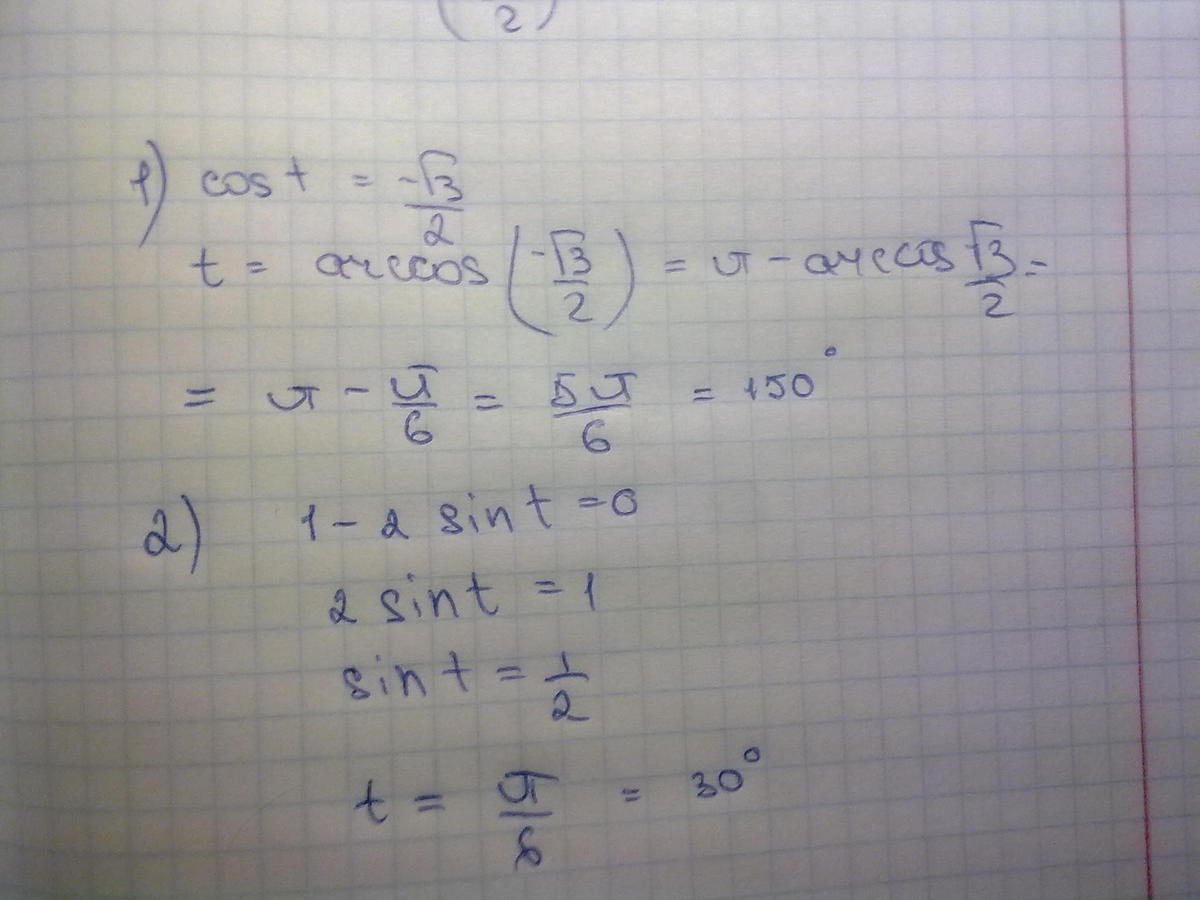 (2)
1) cos t = -√3/2
t = arccos (-√3/2) = π - arccos √3/2 =
= π - π/6 = 5π/6 = 150°
2) 1 - 2 sin t = 0
2 sin t = 1
sin t = 1/2
t = π/6 = 30°